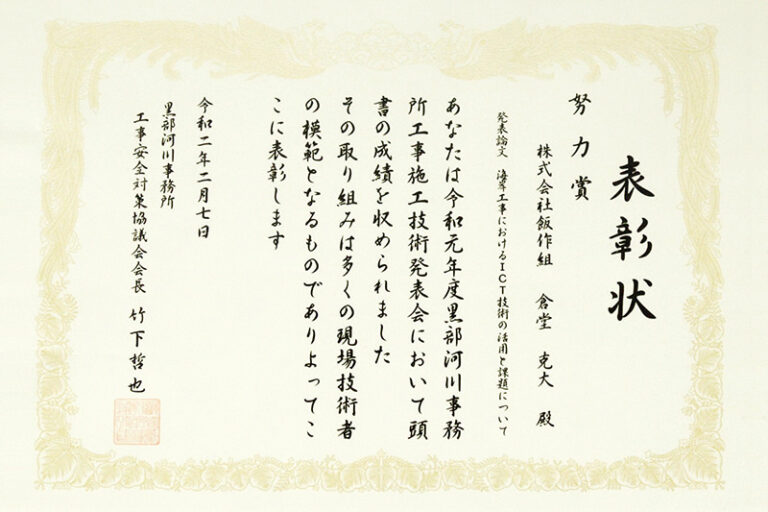 表彰状
努力賞
株式会社飯作組 倉堂 克大 殿
発表論文 海岸工事におけるICT技術の活用と課題について
あなたは令和元年度黒部河川事務
所工事施工技術発表会において頭
書の成績を収められました
その取り組みは多くの現場技術者
の模範となるものでありよってこ
こに表彰します
令和二年二月七日
黒部河川事務所
工事安全対策協議会会長 竹下哲也